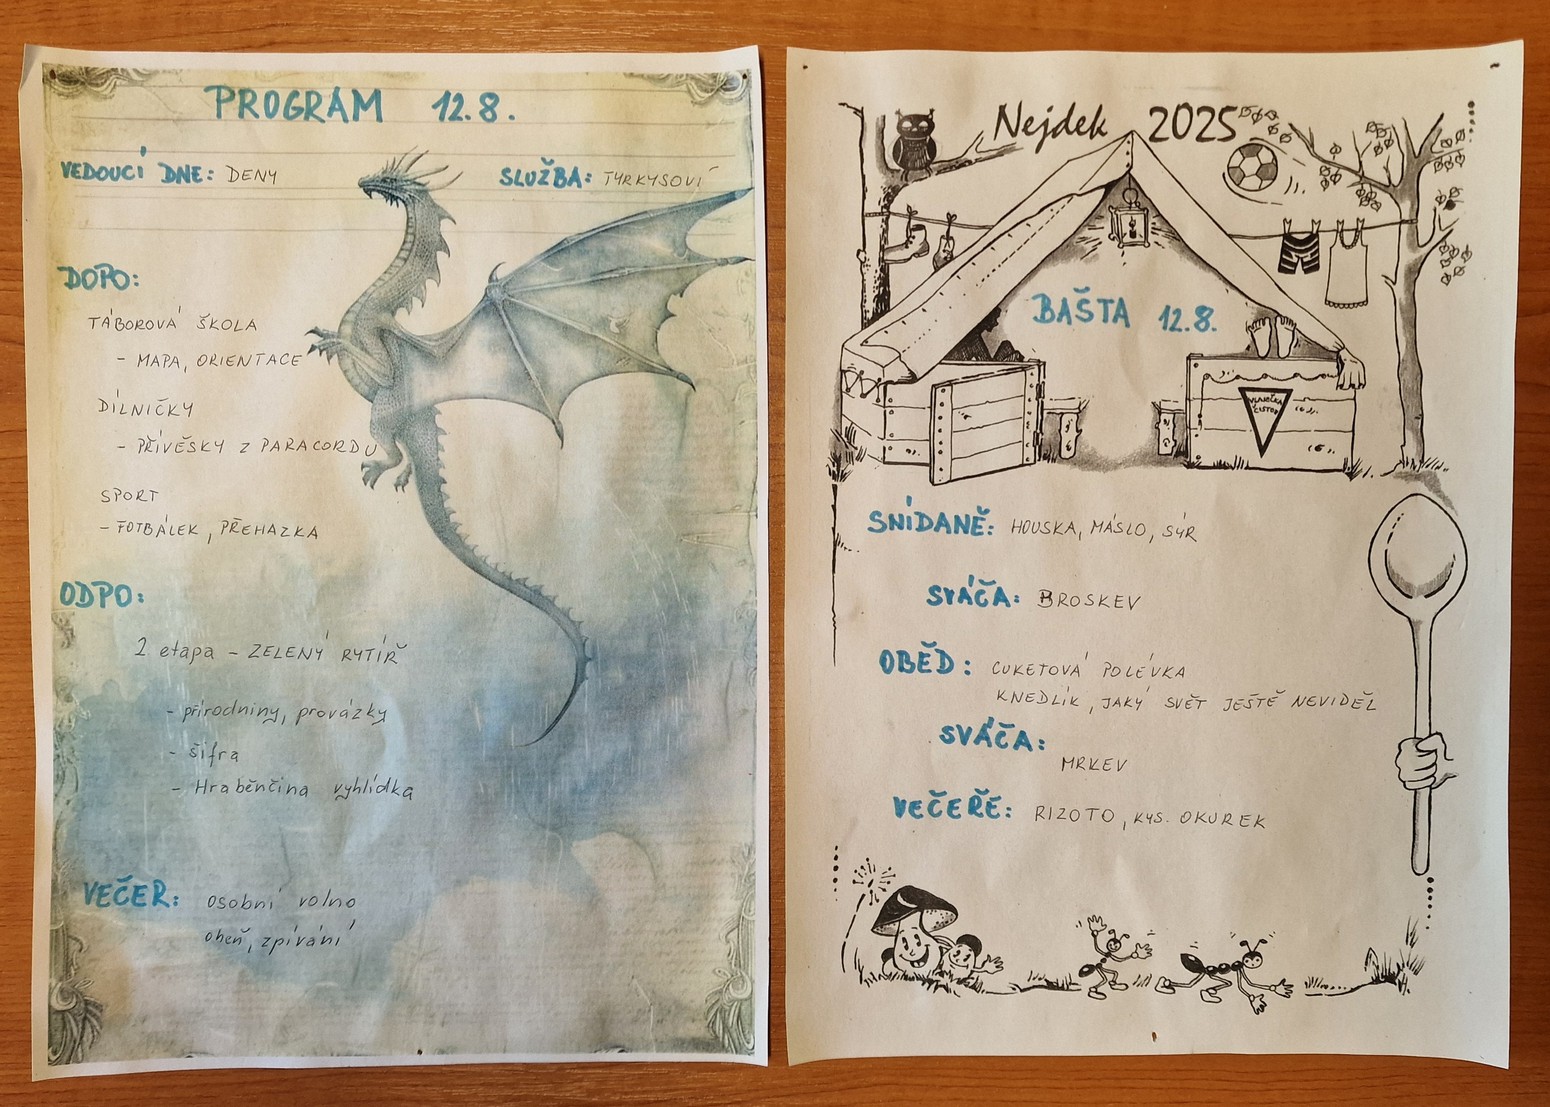 PROGRAM 12.8.
VEDOUCÍ DNE: DENY
SLUŽBA: TYRKYSOVÍ
DOPO:
TÁBOROVÁ ŠKOLA
- MAPA, ORIENTACE
DÍLNIČKY
- PŘÍVĚŠKY Z PARACORDU
SPORT
- FOTBÁLEK, PŘEHAZKA
ODPO:
2 etapa - ZELENÝ RYTÍŘ
- přírodniny, provázky
- šifra
- Hraběnčina vyhlídka
VEČER: osobní volno
oheň, zpívání
Nejdek 2025
BAŠTA 12.8.
VLAJEČKA
ČISTOTY
SNÍDANĚ: HOUSKA, MÁSLO, SÝR
SVÁČA: BROSKEV
OBĚD: CUKETOVÁ POLÉVKA
KNEDLÍK, JAKÝ SVĚT JEŠTĚ NEVIDĚL
SVÁČA:
MRKEV
VEČEŘE: RIZOTO, KYS. OKUREK